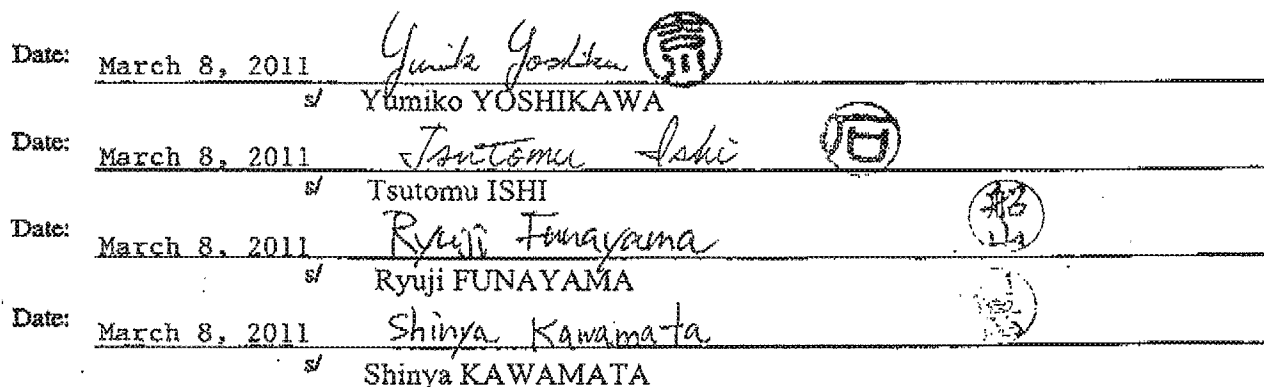 Date: March 8, 2011 Yumiko Yoshikawa 吉川
s/ Yumiko YOSHIKAWA
Date: March 8, 2011 Tsutomu Ishi 石
s/ Tsutomu ISHI
Date: March 8, 2011 Ryuji Funayama 船山
s/ Ryuji FUNAYAMA
Date: March 8, 2011 Shinya Kawamata
s/ Shinya KAWAMATA